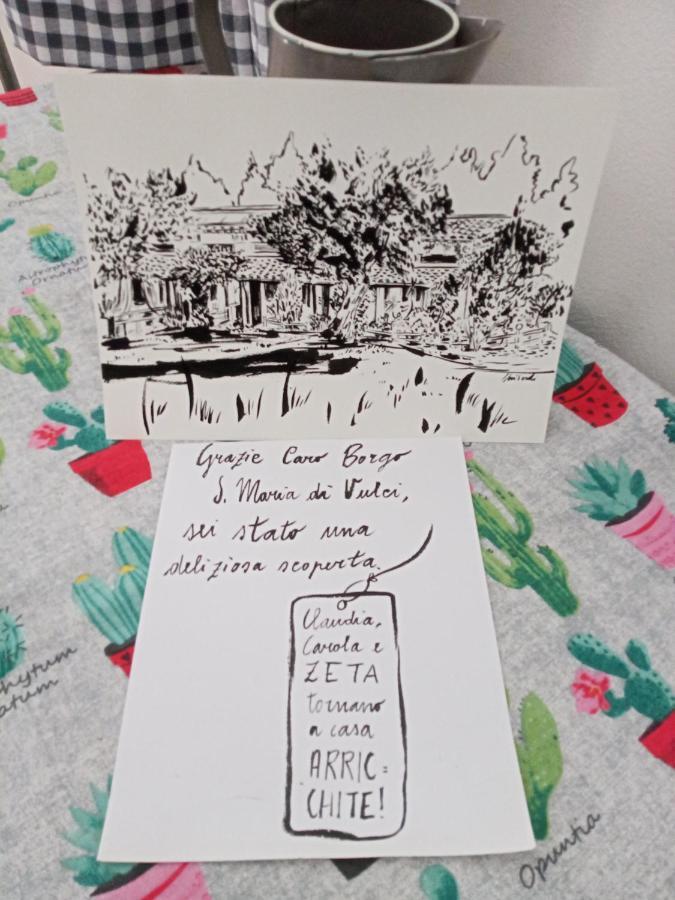 Grazie Caro Borgo
S. Maria di Vulci,
sei stato una
deliziosa scoperta.
Claudia,
Carola e
ZETA
tornano
a casa
ARRIC=
CHITE!
Astrophytum
Ornatum
Opuntia